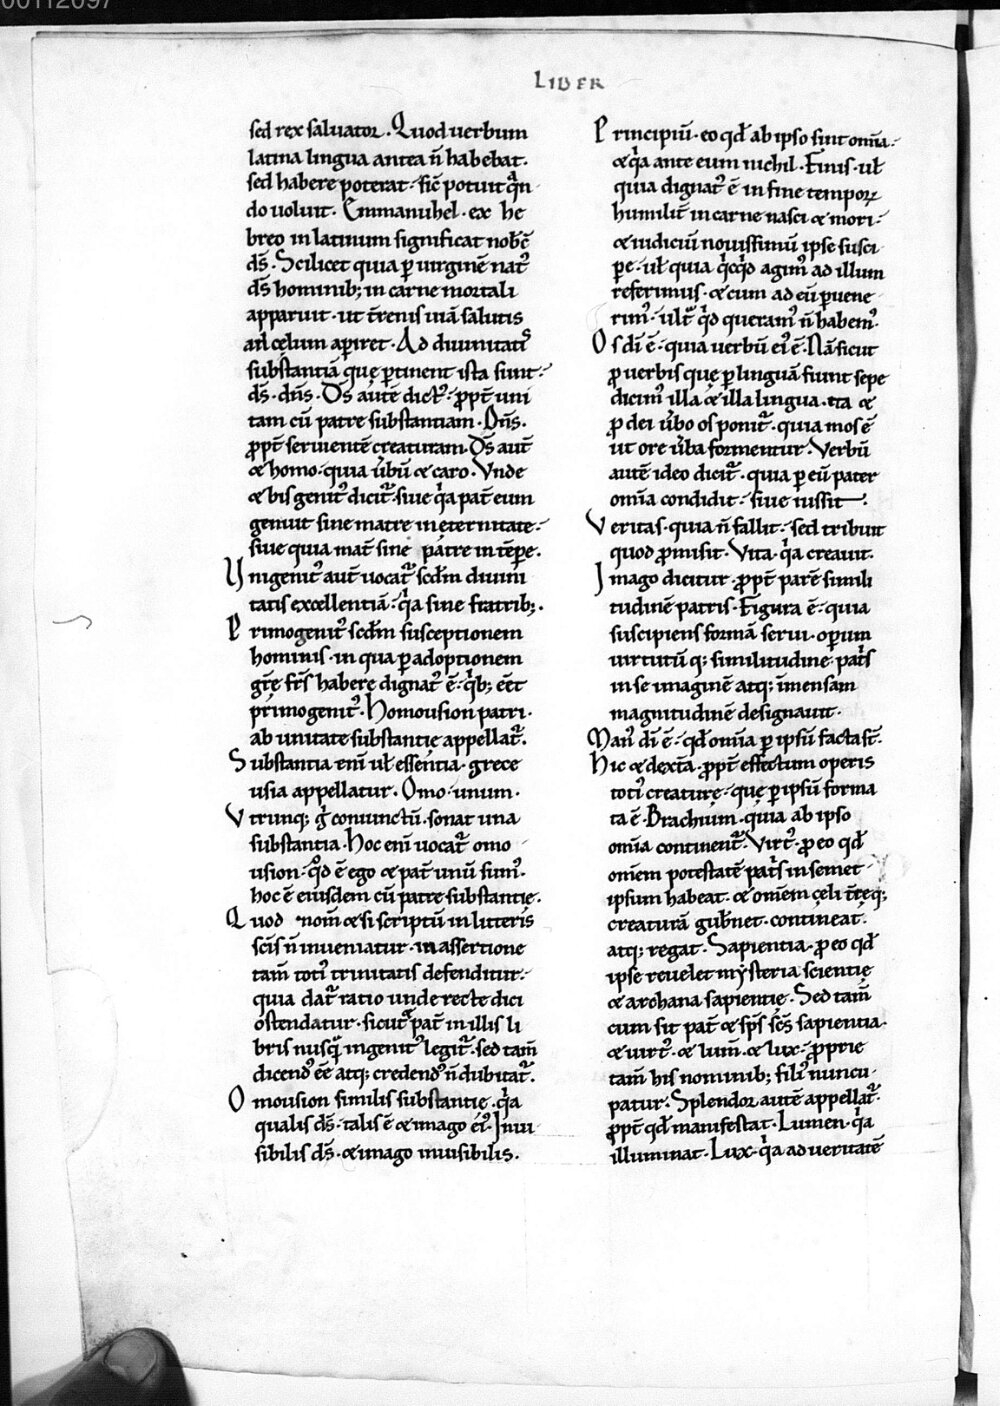 00112097
LIBER
sed rex saluator. Quod uerbum
latina lingua antea n̄ habebat.
sed habere poterat. sic̄ potuit qn̄
do uoluit. Emmanuhel. ex he
breo in latinum significat nobc̄
ds̄. Scilicet quia ꝑ uirginē nat᷒
ds̄ hominib; in carne mortali
apparuit. ut t̄renis uiā salutis
ad cęlum apiret. Ad diuinitatis
substantiā quę ꝑtinent ista sunt.
ds̄. dn̄s. Ds̄ autē dict᷒. ꝓpt̄ uni
tam cū patre substantiam. Dn̄s.
ꝓpt̄ seruientē creaturam. Ds̄ aut̄
& homo. quia ūbū & caro. Vnde
& bis genit᷒ dicit᷑. siue qͥa pat̄ eum
genuit sine matre in eternitate.
siue quia mat̄ sine patre in tēpe.
Vnigenit᷒ aut̄ uocat᷑ scd̄m diuini
tatis excellentiā. qͥa sine fratrib;.
Primogenit᷒ scd̄m susceptionem
hominis. in qua ꝑ adoptionem
gr̄e frs̄ habere dignat᷒ ē. qͥb; eēt
primogenit᷒. Homousion patri.
ab unitate substantię appellat᷑.
Substantia enī ul̄ essentia. grece
usia appellatur. Omo. unum.
Vtrunq; g̊ coniunctū. sonat una
substantia. Hoc enī uocat᷑ omo
usion. qd̄ ē ego & pat̄ unū sum᷒.
hoc ē eiusdem cū patre substantię.
Quod nom̄ & si scriptū in litteris
scīs n̄ inueniatur. in assertione
tam̄ toti᷒ trinitatis defenditur.
quia dat᷑ ratio unde recte dici
ostendatur. sicut pat̄ in illis li
bris nusqͣ ingenit᷒ legit᷑. sed tam̄
dicend᷒ eē atq; credend᷒ n̄ dubitat᷑.
Omousion similis substantię. qͥa
qualis ds̄. talis ē & imago ei᷒. Inui
sibilis ds̄. & imago inuisibilis.
Principiū. eo qd̄ ab ipso sint om̄ia.
& qͥa ante eum nichil. Finis. ul̄
quia dignat᷒ ē in fine temporꝝ
humilit̄ in carne nasci & mori.
& iudiciū nouissimū ipse susci
pe. ul̄ quia qͥcqͥd agim᷒ ad illum
referimus. & cum ad eū ꝑuene
rim᷒. ult᷑ qͥd queram᷒ n̄ habem᷒.
Os dī ē. quia uerbū ei᷒ ē. Nā sicut
ꝓ uerbis quę ꝑ linguā fiunt sepe
dicim᷒ illa & illa lingua. ita &
ꝓ dei ūbo os ponit᷑. quia mos ē
ut ore ūba formentur. Verbū
autē ideo dicit᷑. quia ꝑ eū pater
om̄ia condidit. siue iussit.
Veritas. quia n̄ fallit. sed tribuit
quod ꝓmisit. Vita. qͥa creauit.
Imago dicitur ꝓpt̄ parē simili
tudinē patris. Figura ē. quia
suscipiens formā serui. operum
uirtutū q; similitudine patͥs
in se imaginē atq; īmensam
magnitudinē designauit.
Man᷒ dī ē. qd̄ om̄ia ꝑ ipsū facta st̄.
Hic & dext̄a. ꝓpt̄ effectum operis
toti᷒ creaturę. quę ꝑ ipsū forma
ta ē. Brachium. quia ab ipso
om̄ia continent᷑. Virt᷒. ꝓ eo qd̄
om̄em potestatē patͥs in semet
ipsum habeat. & om̄em cęli t̄req;
creaturā gub̄net. contineat.
atq; regat. Sapientia. ꝓ eo qd̄
ipse reuelet mysteria scientię
& archana sapientię. Sed tam̄
cum sit pat̄ & sp̄s sc̄s sapientia.
& uirt᷒. & lum̄. & lux. ꝓprie
tam̄ his nominib; fili᷒ nuncu
patur. Splendor autē appellat᷑.
ꝓpt̄ qd̄ manifestat. Lumen. qͥa
illuminat. Lux. qͥa ad ueritatē